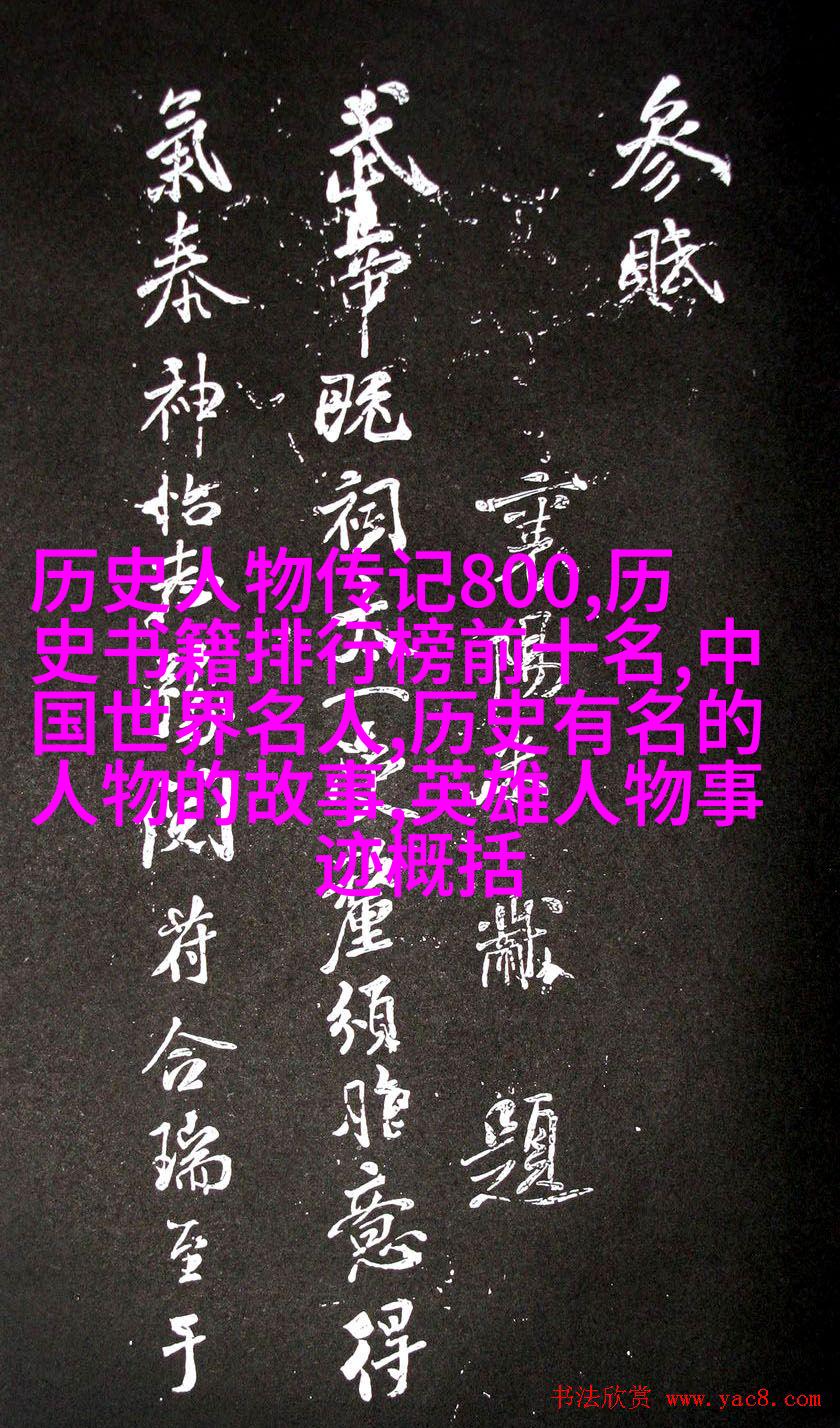 參賦
陽
獻題
武帝既祠太一受釐頒胙意得
氣泰神怡
閱符合瑞至于
历史人物传记800,历
史书籍排行榜前十名,中
国世界名人,历史有名的
人物的故事,英雄人物事
迹概括
书法欣赏 www.yac8.com